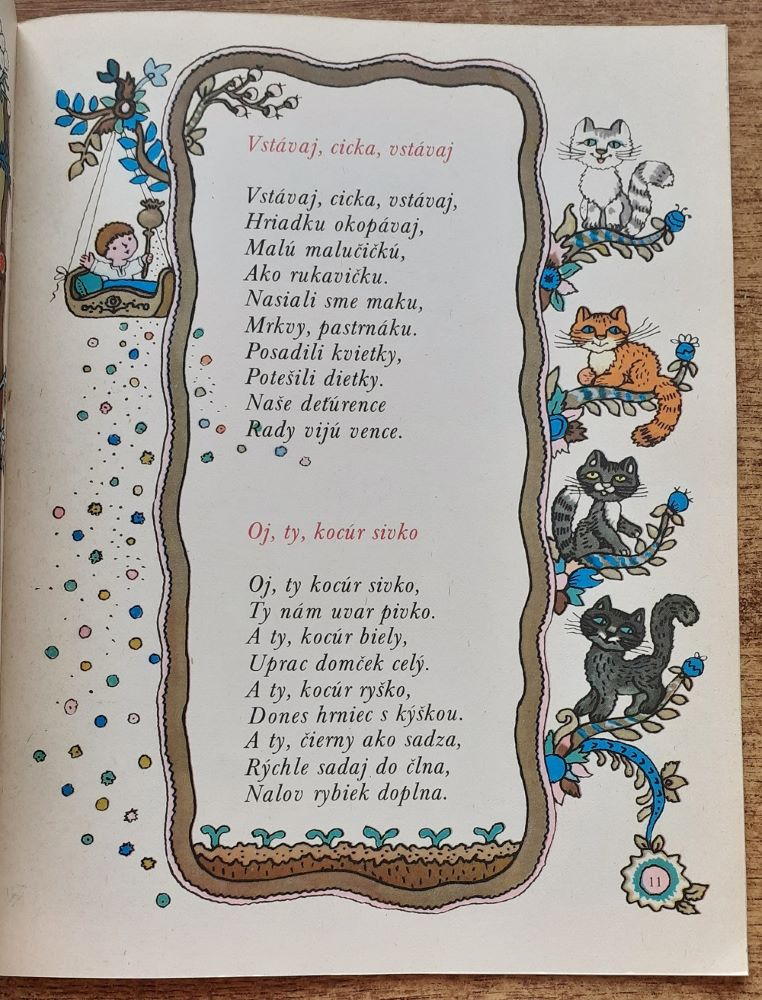 Vstávaj, cicka, vstávaj
Vstávaj, cicka, vstávaj,
Hriadku okopávaj,
Malú malučičkú,
Ako rukavičku.
Nasiali sme maku,
Mrkvy, pastrnáku.
Posadili kvietky,
Potešili dietky.
Naše deťúrence
Rady vijú vence.
Oj, ty, kocúr sivko
Oj, ty kocúr sivko,
Ty nám uvar pivko.
A ty, kocúr biely,
Uprac domček celý.
A ty, kocúr ryško,
Dones hrniec s kýškou.
A ty, čierny ako sadza,
Rýchle sadaj do člna,
Nalov rybiek doplna.
11